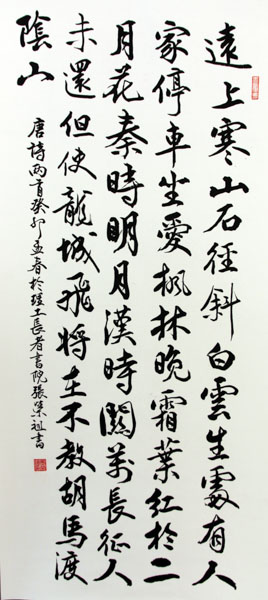 遠上寒山石徑斜白雲生處有人
家停車坐愛楓林晚霜葉紅於二
月花秦時明月漢時關萬長征人
未還但使龍城飛將在不教胡馬渡
陰山
唐詩兩首癸卯孟春於理工長者書院張榮祖書